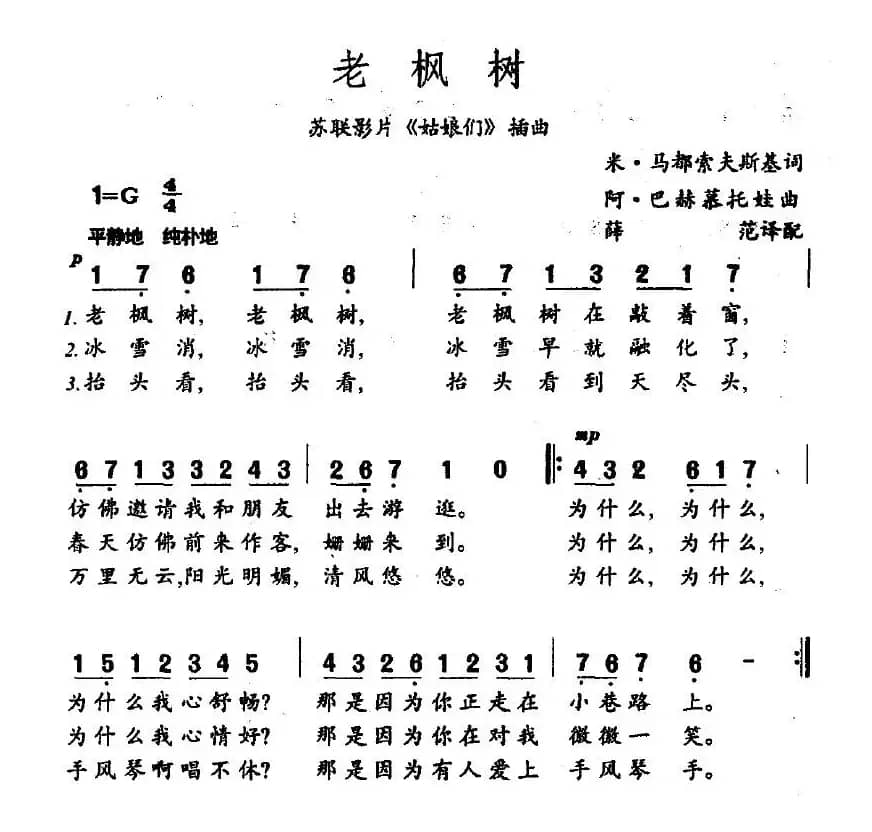 老枫树
苏联影片《姑娘们》插曲
米·马都索夫斯基词
1=G 4/4
阿·巴赫慕托娃曲
平静地 纯朴地
薛 范译配
p
1 7 6 1 7 6 | 6 7 1 3 2 1 7 |
1.老枫树, 老枫树, 老枫树在敲着窗,
2.冰雪消, 冰雪消, 冰雪早就融化了,
3.抬头看, 抬头看, 抬头看到天尽头,
mp
6 7 1 3 3 2 4 3 | 2 6 7 1 0 ‖: 4 3 2 6 1 7 |
仿佛邀请我和朋友 出去游逛。 为什么, 为什么,
春天仿佛前来作客, 姗姗来到。 为什么, 为什么,
万里无云,阳光明媚, 清风悠悠。 为什么, 为什么,
1 5 1 2 3 4 5 | 4 3 2 6 1 2 3 1 | 7 6 7 6 - :‖
为什么我心舒畅? 那是因为你正走在 小巷路上。
为什么我心情好? 那是因为你在对我 微微一笑。
手风琴啊唱不休? 那是因为有人爱上 手风琴手。